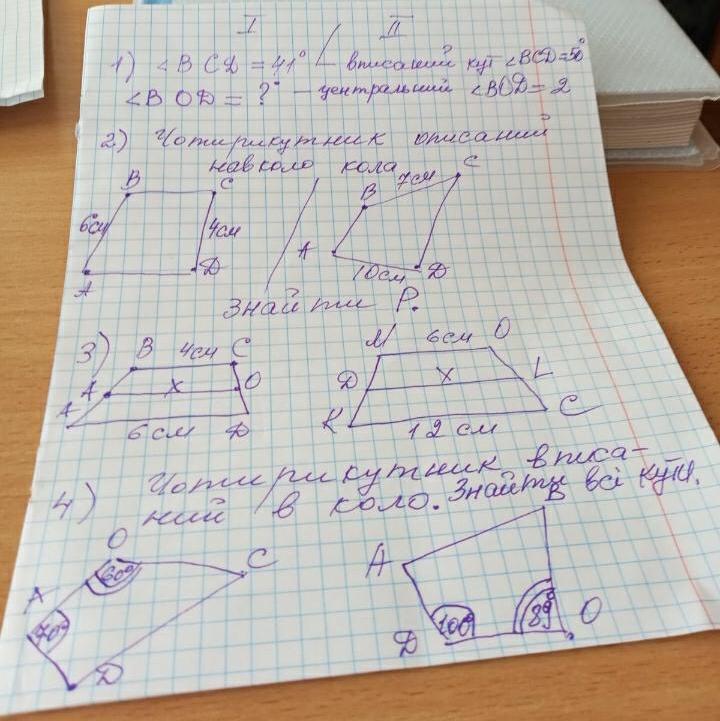 I II
1) ∠BCD = 41° вписаний кут ∠BCD=50°
∠BOD = ? — центральний ∠BOD = ?
2) Чотирикутник описаний
навколо кола
B C 6см 4см A D
B 7см C A 10см D
Знайти P.
3) B 4см C A x O A 6см D
M 6см O D x L K 12 см C
4) Чотирикутник вписа-
ний в коло. Знайти всі кути.
O 60° C A 70° D
B A D 100° 89° O